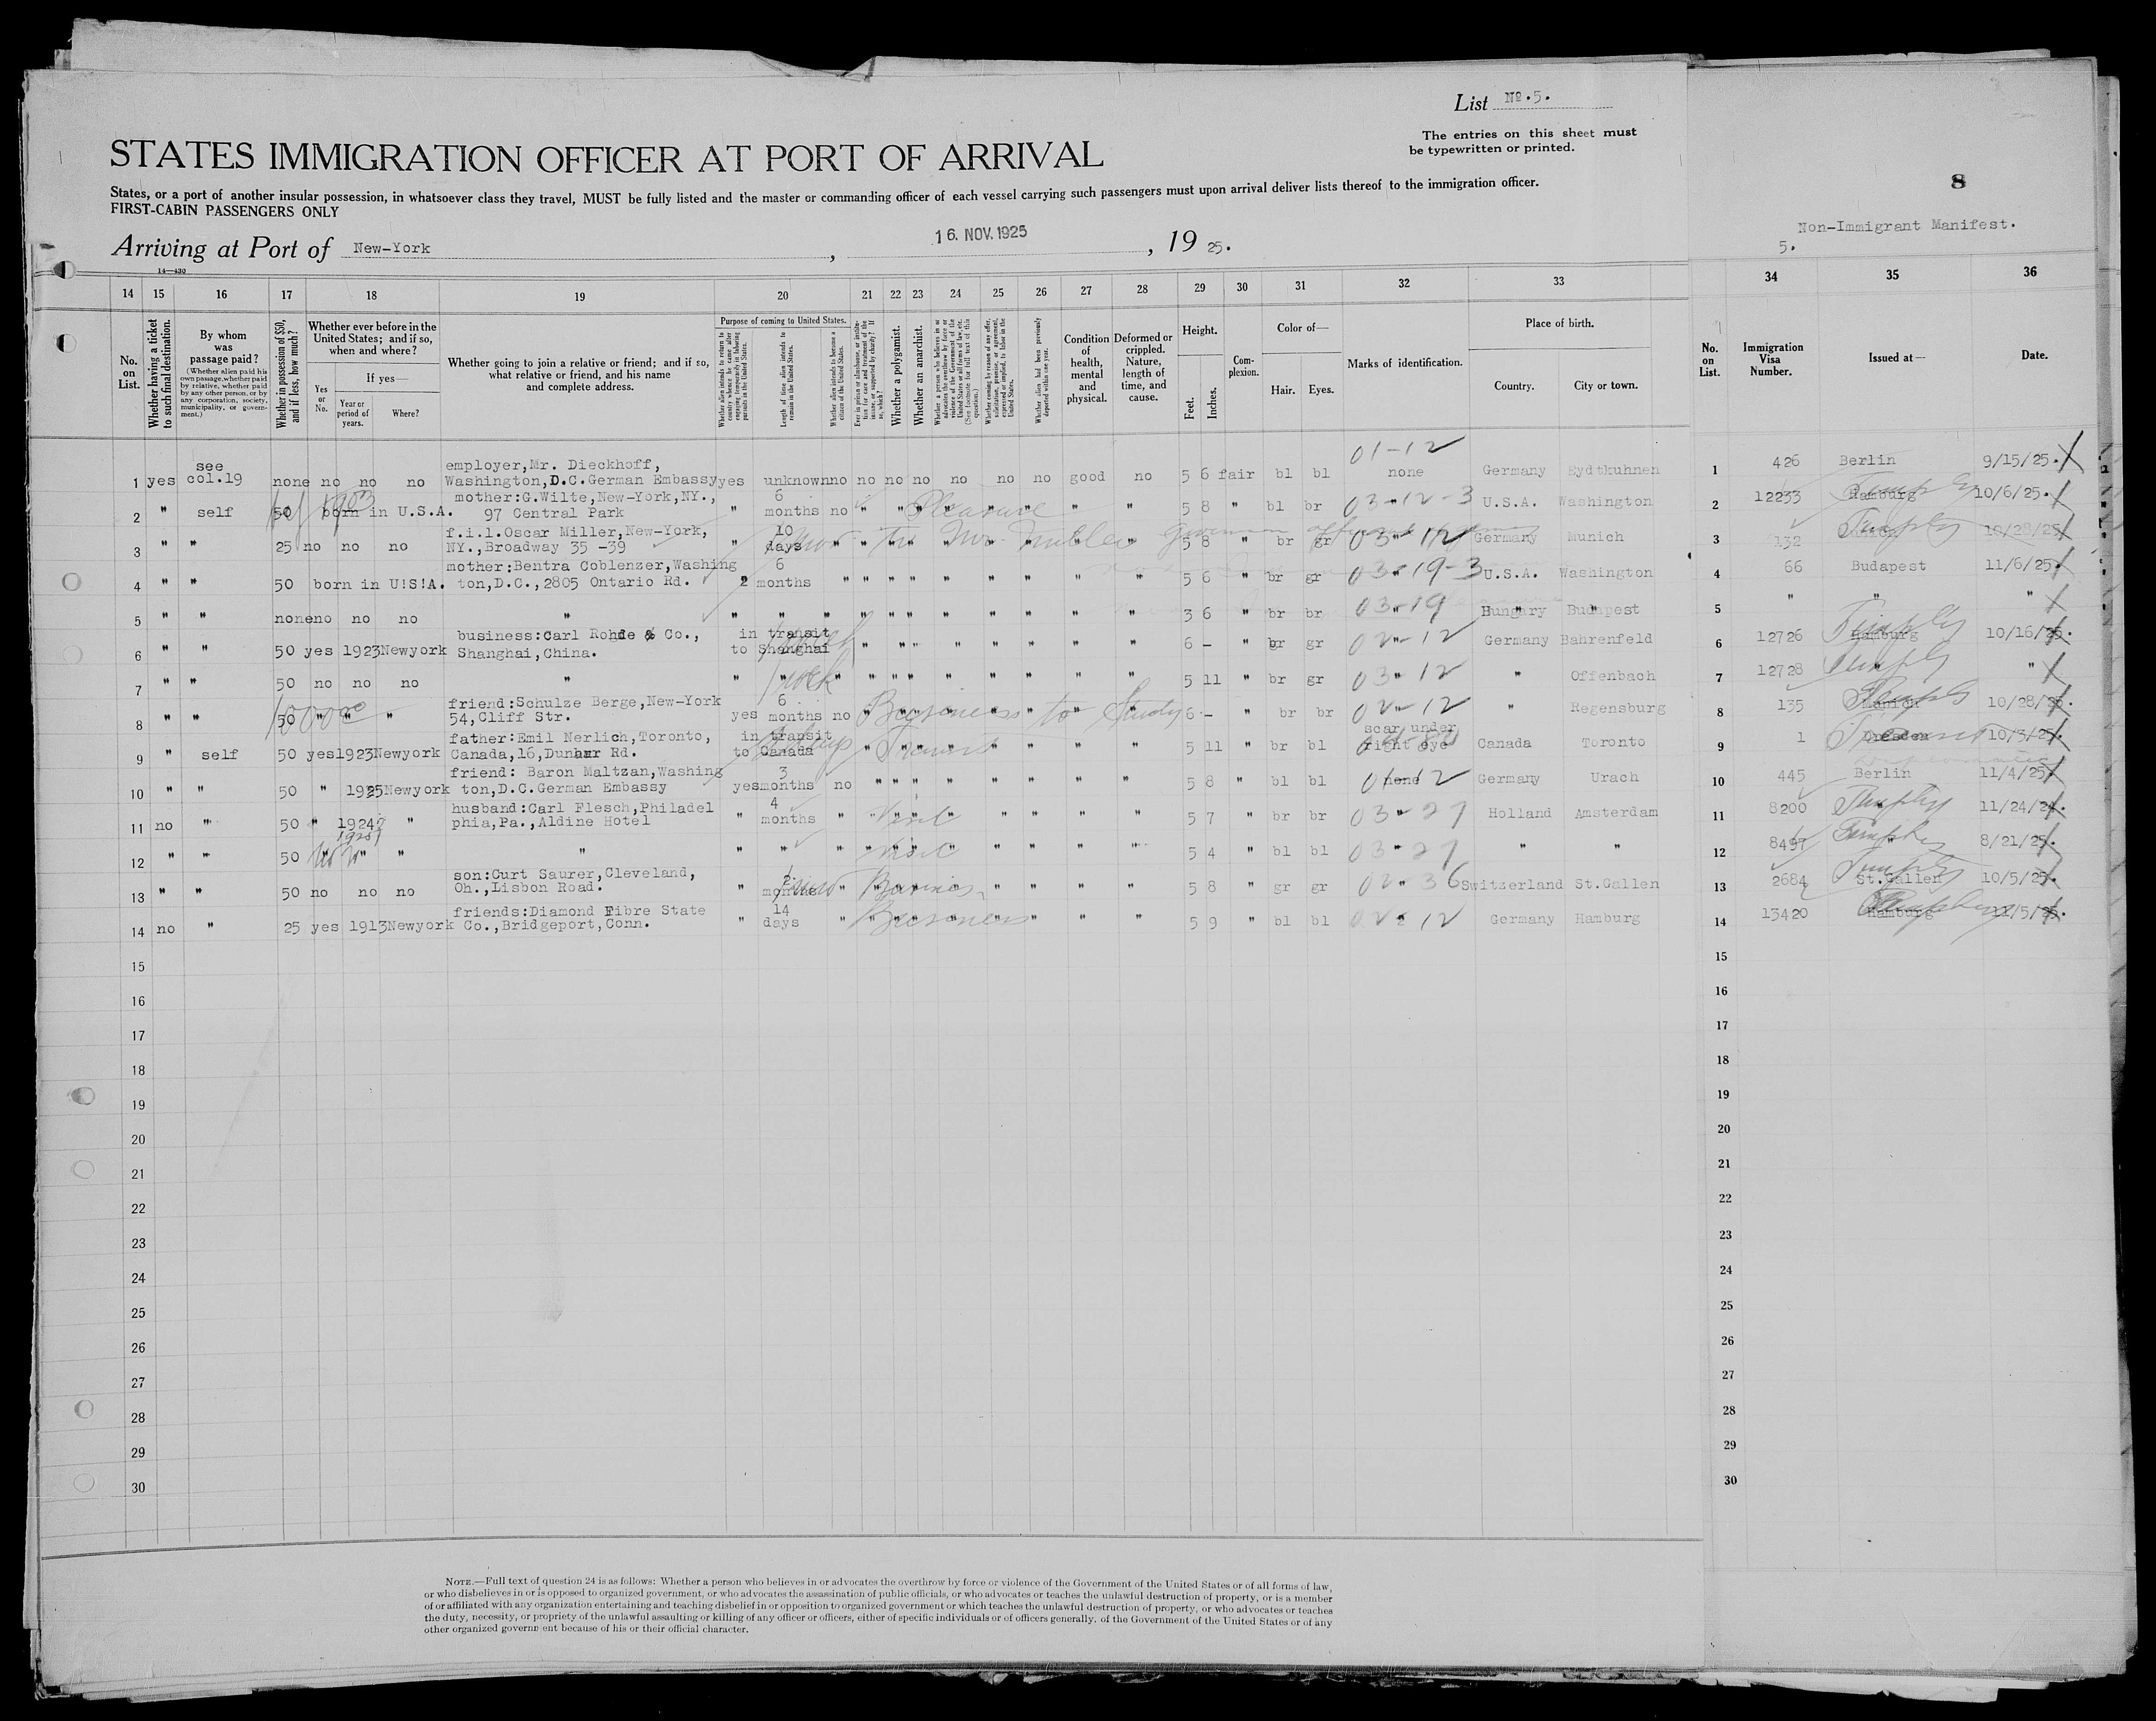 List No. 5.
The entries on this sheet must
be typewritten or printed.
STATES IMMIGRATION OFFICER AT PORT OF ARRIVAL
States, or a port of another insular possession, in whatsoever class they travel, MUST be fully listed and the master or commanding officer of each vessel carrying such passengers must upon arrival deliver lists thereof to the immigration officer.
FIRST-CABIN PASSENGERS ONLY
8
Non-Immigrant Manifest.
5.
Arriving at Port of New-York, 16. NOV. 1925, 19 25.
14—430
14 15 16 17 18 19 20 21 22 23 24 25 26 27 28 29 30 31 32 33 34 35 36
No. on List.
Whether having a ticket to such final destination.
By whom was passage paid?
(Whether alien paid his own passage, whether paid by relative, whether paid by any other person, or by any corporation, society, municipality, or government.)
Whether in possession of $50, and if less, how much?
Whether ever before in the United States; and if so, when and where?
Yes or No.
If yes—
Year or period of years.
Where?
Whether going to join a relative or friend; and if so, what relative or friend, and his name and complete address.
Purpose of coming to United States.
Length of time alien intends to remain in the United States.
Whether alien intends to become a citizen of the United States.
Whether a polygamist.
Whether an anarchist.
Condition of health, mental and physical.
Deformed or crippled. Nature, length of time, and cause.
Height.
Feet.
Inches.
Complexion.
Color of—
Hair.
Eyes.
Marks of identification.
Place of birth.
Country.
City or town.
No. on List.
Immigration Visa Number.
Issued at—
Date.
01-12
1 yes see col.19 none no no no employer,Mr. Dieckhoff, Washington,D.C.German Embassy yes unknown no no no no no no no good no 5 6 fair bl bl none Germany Eydtkuhnen 1 426 Berlin 9/15/25.
2 " self 50 1903 born in U.S.A. mother:G.Wilte,New-York,NY., 97 Central Park " 6 months no " Pleasure " " 5 8 " bl br 03-12-3 U.S.A. Washington 2 12233 Hamburg 10/6/25.
3 " " 25 no no no f.i.l.Oscar Miller,New-York, NY.,Broadway 35 -39 " 10 days " " " " " " " " " 5 8 " br gr 03-12 Germany Munich 3 132 10/28/25
4 " " 50 born in U!S!A. mother:Bentra Coblenzer,Washing ton,D.C.,2805 Ontario Rd. " 6 2 months " " " " " " " " " 5 6 " br gr 03-19-3 U.S.A. Washington 4 66 Budapest 11/6/25.
5 " " none no no no " " " " " " " " " " " " 3 6 " br br 03-19 Hungary Budapest 5 " " "
6 " " 50 yes 1923 Newyork business:Carl Rohde & Co., Shanghai,China. in transit to Shanghai " " " " " " " " 6 - " br gr 02-12 Germany Bahrenfeld 6 12726 Hamburg 10/16/25.
7 " " 50 no no no " " " " " " " " " " " 5 11 " br gr 03-12 " Offenbach 7 12728 "
8 " " 50 " " " friend:Schulze Berge,New-York 54,Cliff Str. yes 6 months no Business to Study 6 - " br br 02-12 " Regensburg 8 135 Munich 10/28/25.
9 " self 50 yes 1923 Newyork father:Emil Nerlich,Toronto, Canada,16,Dunbar Rd. in transit to Canada " " " " " " " " 5 11 " br bl scar under right eye Canada Toronto 9 1 Dresden 10/3/25.
10 " " 50 " 1925 Newyork friend: Baron Maltzan,Washing ton,D.C.German Embassy yes 3 months no " " " " " " " " 5 8 " bl bl none 01-12 Germany Urach 10 445 Berlin 11/4/25
11 no " 50 " 1924 " husband:Carl Flesch,Philadel phia,Pa.,Aldine Hotel " 4 months " Visit " " 5 7 " br br 03-27 Holland Amsterdam 11 8200 11/24/24.
12 " " 50 " 1925 " " " " " visit " " 5 4 " bl bl 03-27 " " 12 8497 8/21/25.
13 " " 50 no no no son:Curt Saurer,Cleveland, Oh.,Lisbon Road. " 2 months " " " 5 8 " gr gr 02-36 Switzerland St.Gallen 13 2684 St.Gallen 10/5/25.
14 no " 25 yes 1913 Newyork friends:Diamond Fibre State Co.,Bridgeport,Conn. " 14 days " Business " " 5 9 " bl bl 02-12 Germany Hamburg 14 13420 Hamburg 11/5/25.
15 15
16 16
17 17
18 18
19 19
20 20
21 21
22 22
23 23
24 24
25 25
26 26
27 27
28 28
29 29
30 30
NOTE.—Full text of question 24 is as follows: Whether a person who believes in or advocates the overthrow by force or violence of the Government of the United States or of all forms of law,
or who disbelieves in or is opposed to organized government, or who advocates the assassination of public officials, or who advocates or teaches the unlawful destruction of property, or is a member
of or affiliated with any organization entertaining and teaching disbelief in or opposition to organized government or which teaches the unlawful destruction of property, or who advocates or teaches
the duty, necessity, or propriety of the unlawful assaulting or killing of any officer or officers, either of specific individuals or of officers generally, of the Government of the United States or of any
other organized government because of his or their official character.